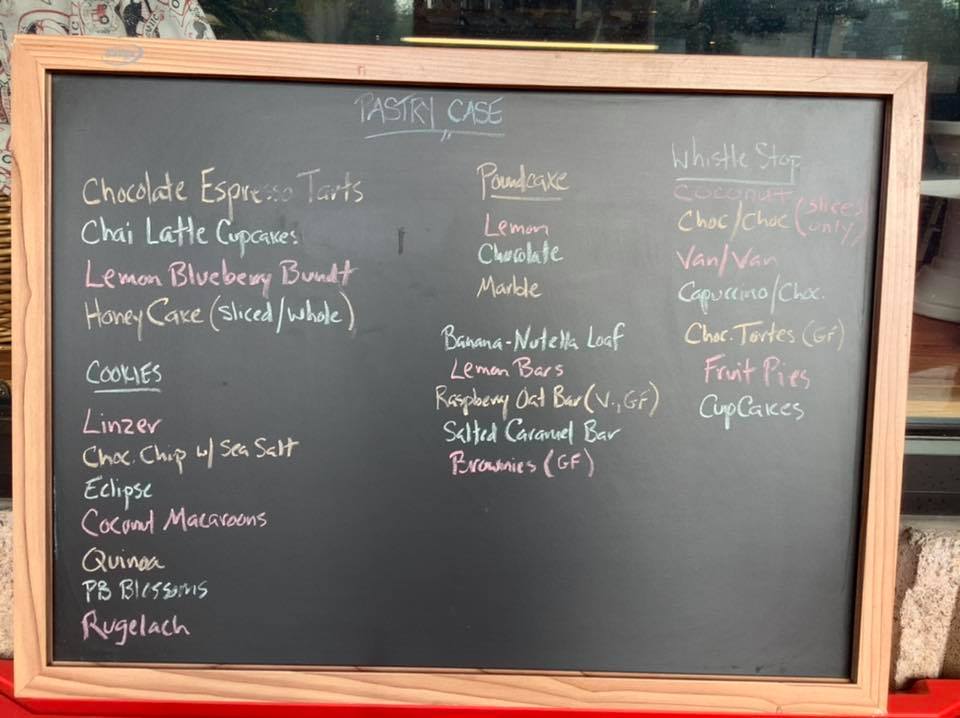 PASTRY CASE
Chocolate Espresso Tarts
Chai Latte Cupcakes
Lemon Blueberry Bundt
Honey Cake (sliced/whole)
COOKIES
Linzer
Choc. Chip w/ Sea Salt
Eclipse
Coconut Macaroons
Quinoa
PB Blossoms
Rugelach
Poundcake
Lemon
Chocolate
Marble
Banana-Nutella Loaf
Lemon Bars
Raspberry Oat Bar (V., GF)
Salted Caramel Bar
Brownies (GF)
Whistle Stop
Coconut
Choc/Choc (slices only)
Van/Van
Capuccino/Choc.
Choc. Tortes (GF)
Fruit Pies
CupCakes